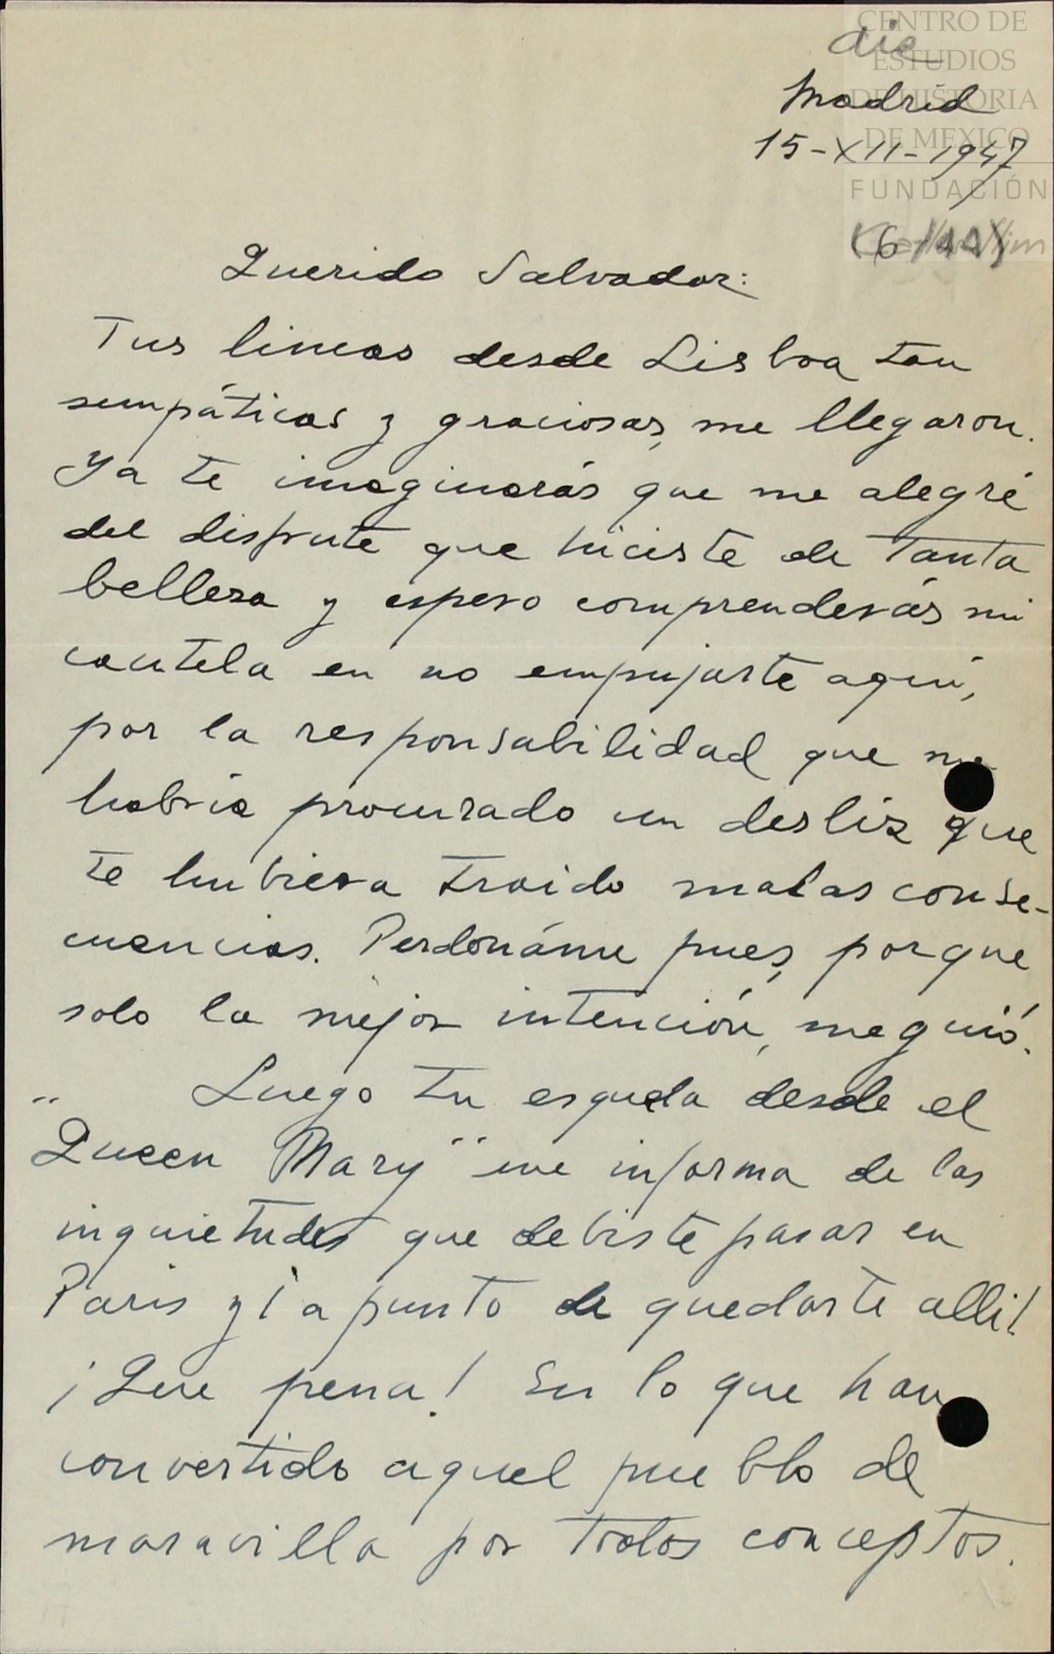 CENTRO DE
ESTUDIOS
DE HISTORIA
DE MEXICO
FUNDACIÓN
dic
Madrid
15-XII-1947
Querido Salvador:
Tus lineas desde Lisboa tan
simpáticas y graciosas, me llegaron.
Ya te imaginarás que me alegré
del disfrute que hiciste de tanta
belleza y espero comprenderás mi
cautela en no empujarte aquí,
por la responsabilidad que me
habria procurado un desliz que
te hubiera traido malas conse-
cuencias. Perdonáme pues, porque
solo la mejor intención, me guió.
Luego tu esquela desde el
"Queen Mary" me informa de las
inquietudes que debiste pasar en
Paris y ¡a punto de quedarte alli!
¡Que pena! En lo que han
convertido aquel pueblo de
maravilla por todos conceptos.